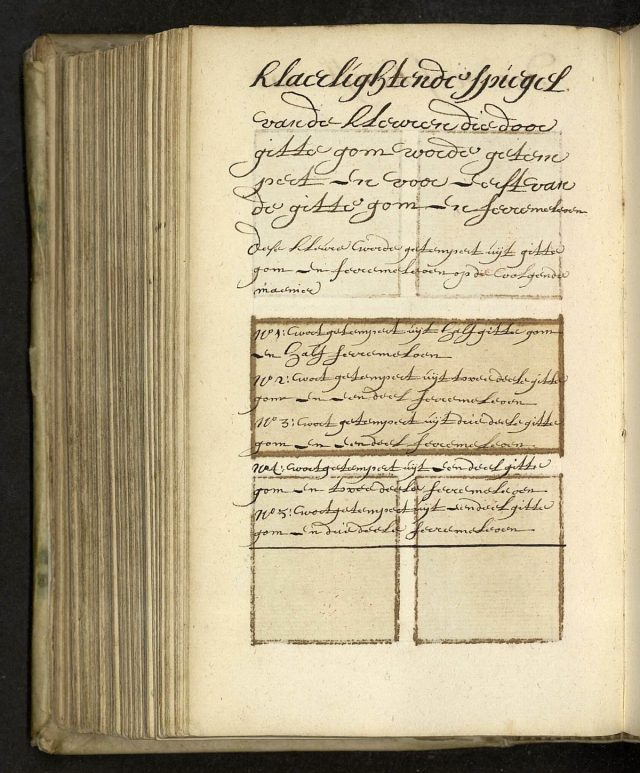 Klaerlightende Spiegel
van de Klewren die door
gitte gom worde getem
pert En voor Eerst van
de gitte gom En ferremeloen
Dese Klewre worde getempert uijt gitte
gom En ferremeloen op de volgende
manier
No 1: wort getempert uijt half gitte gom
En half ferremeloen
No 2: wort getempert uijt twee deele gitte
gom En Een deel ferremeloen
No 3: wort getempert uijt drie deele gitte
gom En Een deel ferremeloen
No 4: wort getempert uijt Een deel gitte
gom En twee deele ferremeloen
No 5: wort getempert uijt Een deel gitte
gom En drie deele ferremeloen